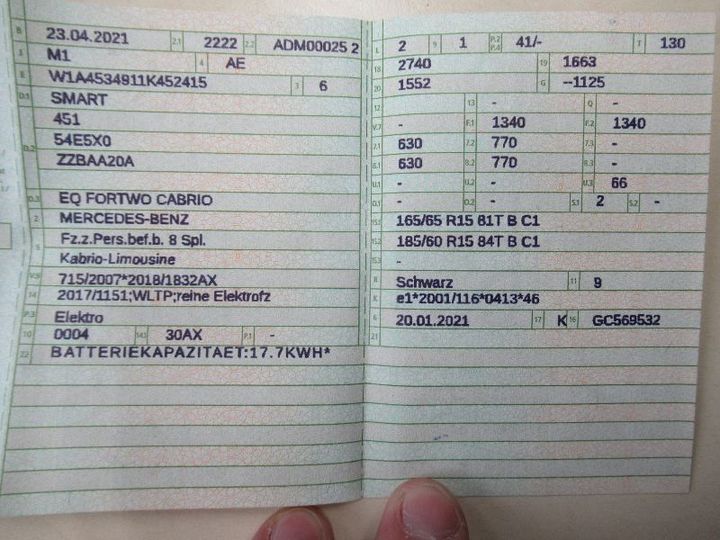 B 23.04.2021 2.1 2222 2.2 ADM00025 2
J M1 4 AE
E W1A4534911K452415 3 6
D.1 SMART
451
D.2 54E5X0
ZZBAA20A
D.3 EQ FORTWO CABRIO
2 MERCEDES-BENZ
5 Fz.z.Pers.bef.b. 8 Spl.
Kabrio-Limousine
V.9 715/2007*2018/1832AX
14 2017/1151;WLTP;reine Elektrofz
P.3 Elektro
10 0004 14.1 30AX P.1 -
22 BATTERIEKAPAZITAET:17.7KWH*
L 2 9 1 P.2 P.4 41/- T 130
18 2740 19 1663
20 1552 G --1125
12 13 - Q -
V.7 - F.1 1340 F.2 1340
7.1 630 7.2 770 7.3 -
8.1 630 8.2 770 8.3 -
U.1 - U.2 - U.3 66
O.1 - O.2 - S.1 2 S.2 -
15.1 165/65 R15 81T B C1
15.2 185/60 R15 84T B C1
15.3 -
R Schwarz 11 9
K e1*2001/116*0413*46
6 20.01.2021 17 K 16 GC569532
21